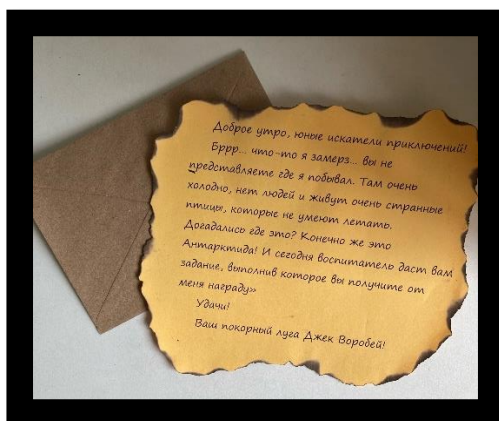 Доброе утро, юные искатели приключений!
Бррр... что-то я замерз... вы не
представляете где я побывал. Там очень
холодно, нет людей и живут очень странные
птицы, которые не умеют летать.
Догадались где это? Конечно же это
Антарктида! И сегодня воспитатель даст вам
задание, выполнив которое вы получите от
меня награду»
Удачи!
Ваш покорный луга Джек Воробей!